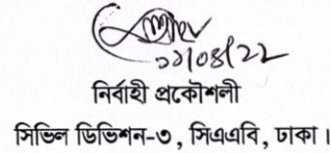 ১১/০৪/২২
নির্বাহী প্রকৌশলী
সিভিল ডিভিশন-৩, সিএএবি, ঢাকা।